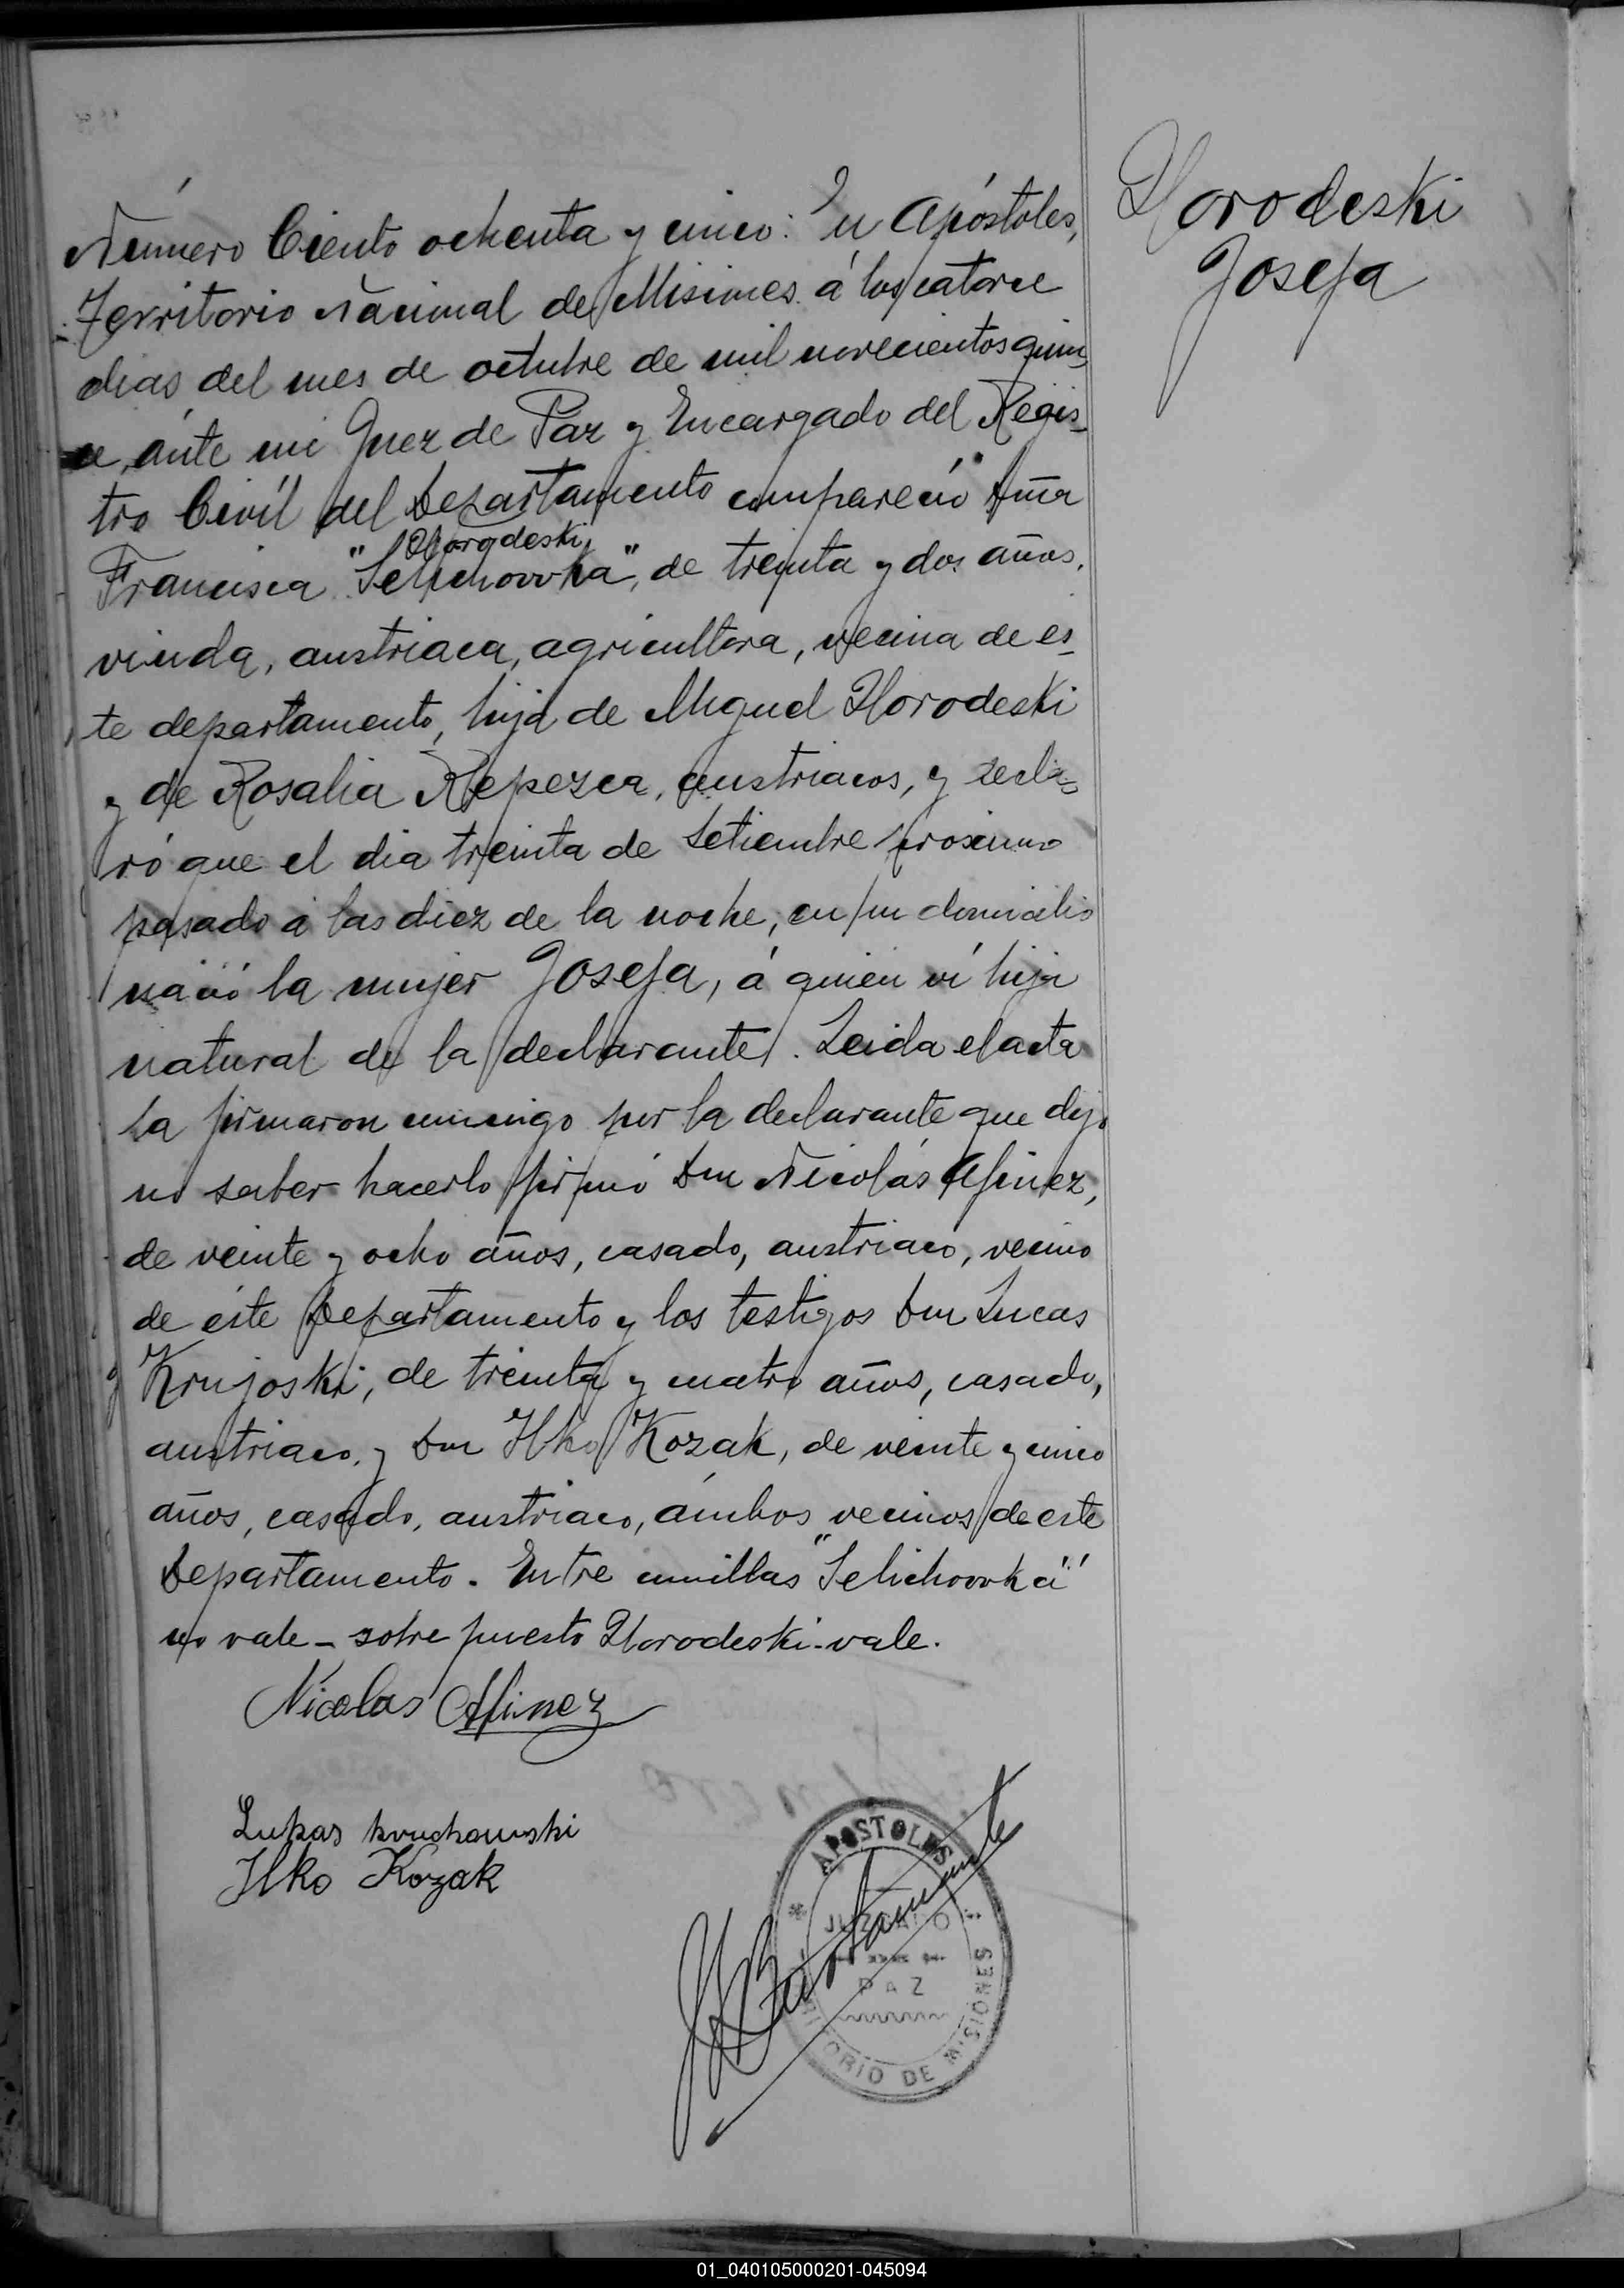 Horodeski
Josefa
Número Ciento ochenta y cinco: En Apóstoles,
Territorio Nacional de Misiones á los catorce
dias del mes de octubre de mil novecientos quin-
ce, ánte mi Juez de Paz y Encargado del Regis-
tro Civíl del Departamento compareció Dña
Horodeski
Francisca "Selichovvka", de treinta y dos años,
viuda, austriaca, agricultora, vecina de es-
te departamento, hija de Miguel Horodeski
y de Rosalia Repezca, austriacos, y decla-
ró que el dia treinta de Setiembre proximo
pasado á las diez de la noche, en su domicilio
nació la mujer Josefa, á quien ví hija
natural de la declarante. Leida el acta
la firmaron conmigo por la declarante que dijo
no saber hacerlo firmó Don Nicolás Afinez,
de veinte y ocho años, casado, austriaco, vecino
de éste Departamento y los testigos Don Lucas
Krujoski, de treinta y cuatro años, casado,
austriaco, y Don Ilko Kozak, de veinte y cinco
años, casado, austriaco, ámbos vecinos de este
Departamento. Entre comillas "Selichovvka"
no vale - sobre puesto Horodeski - vale.
Nicolas Afinez
Lukas Kruchowski
Ilko Kozak
APOSTOLES
JUZGADO
PAZ
TERRITORIO DE MISIONES
01_040105000201-045094